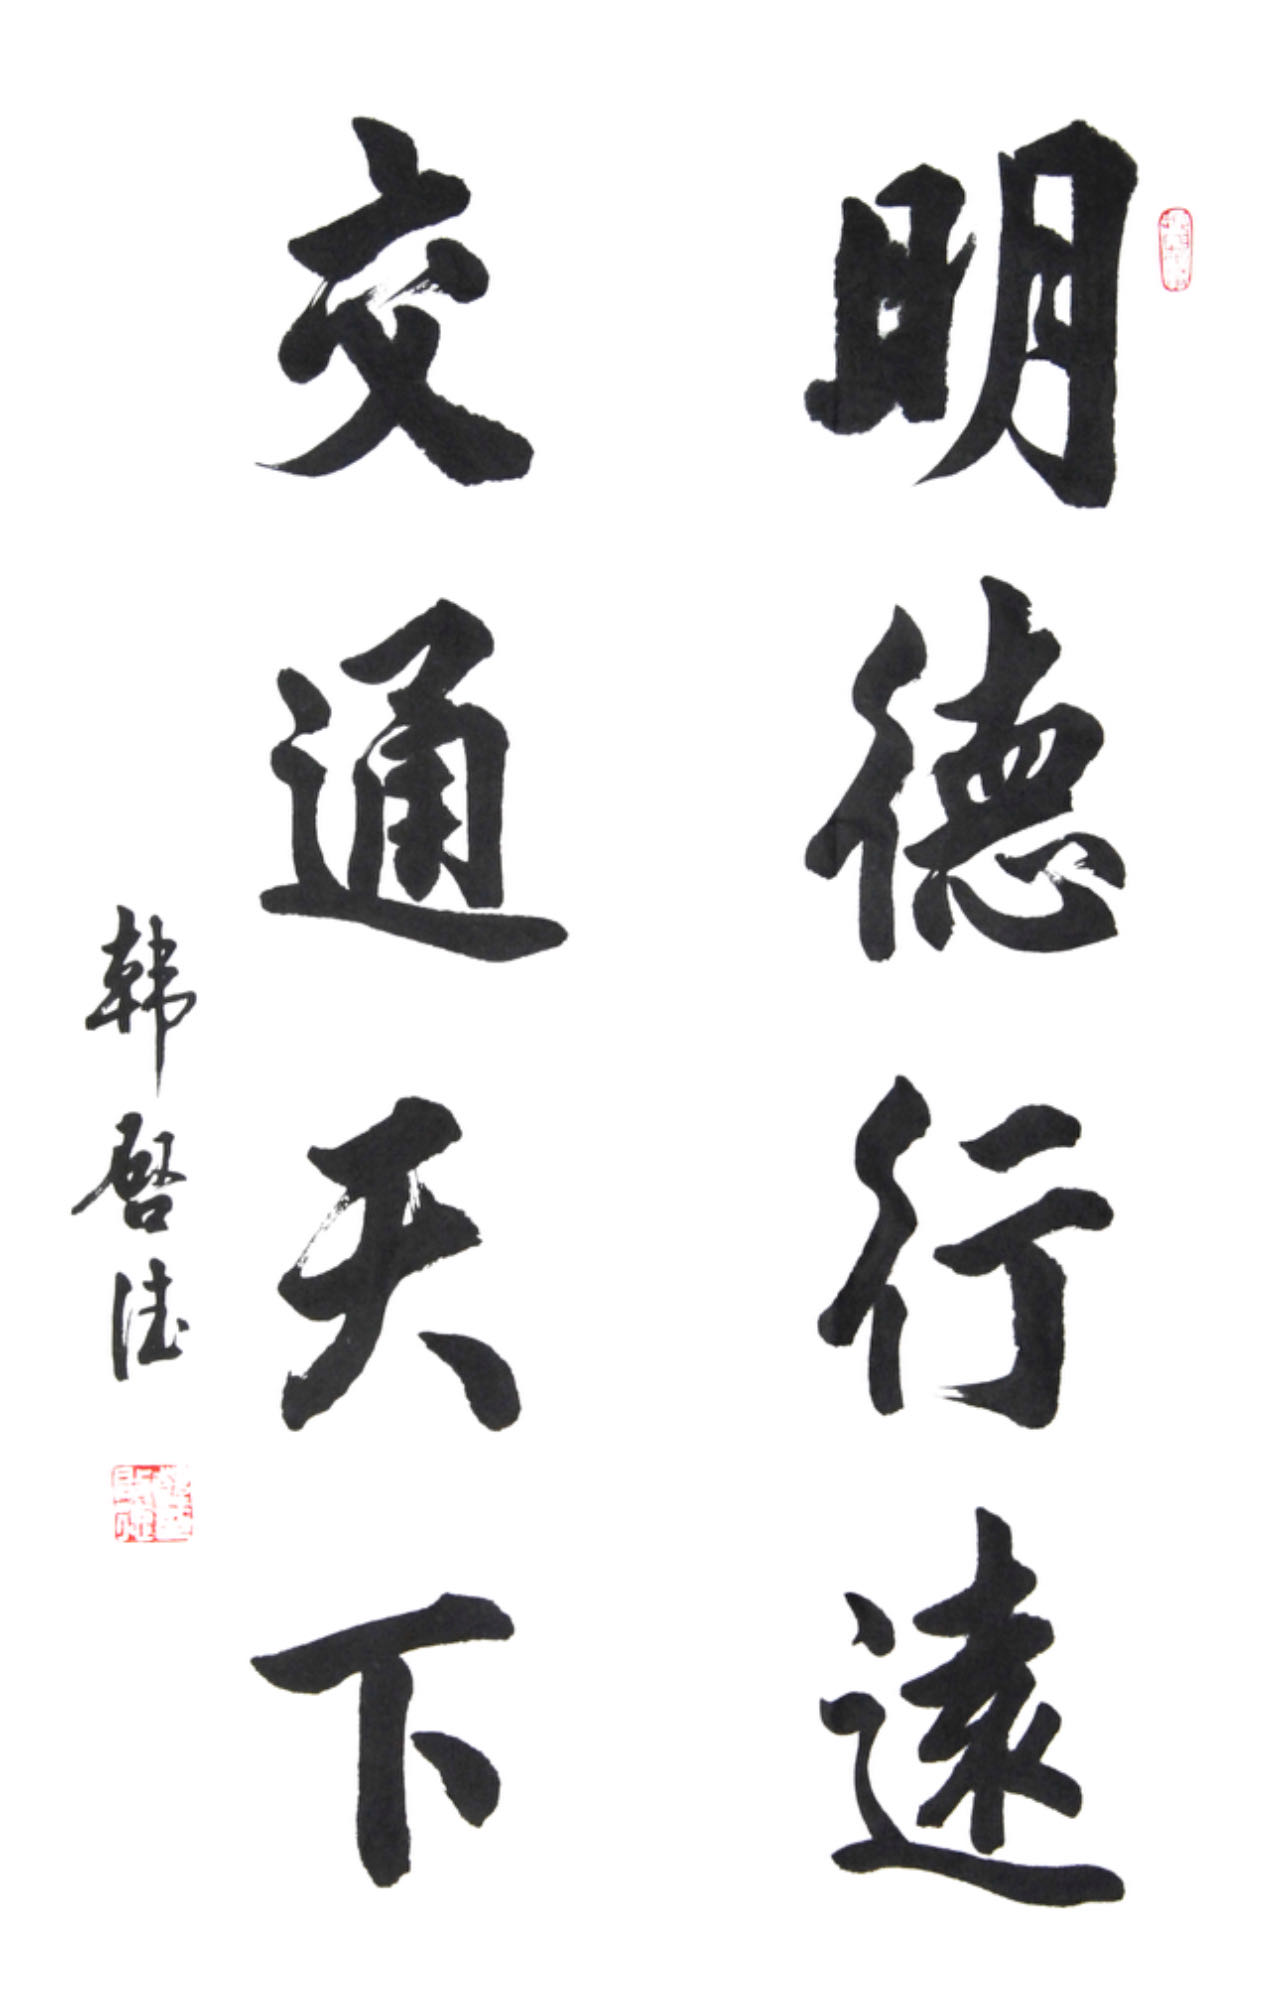 明德行遠
交通天下
韩启德